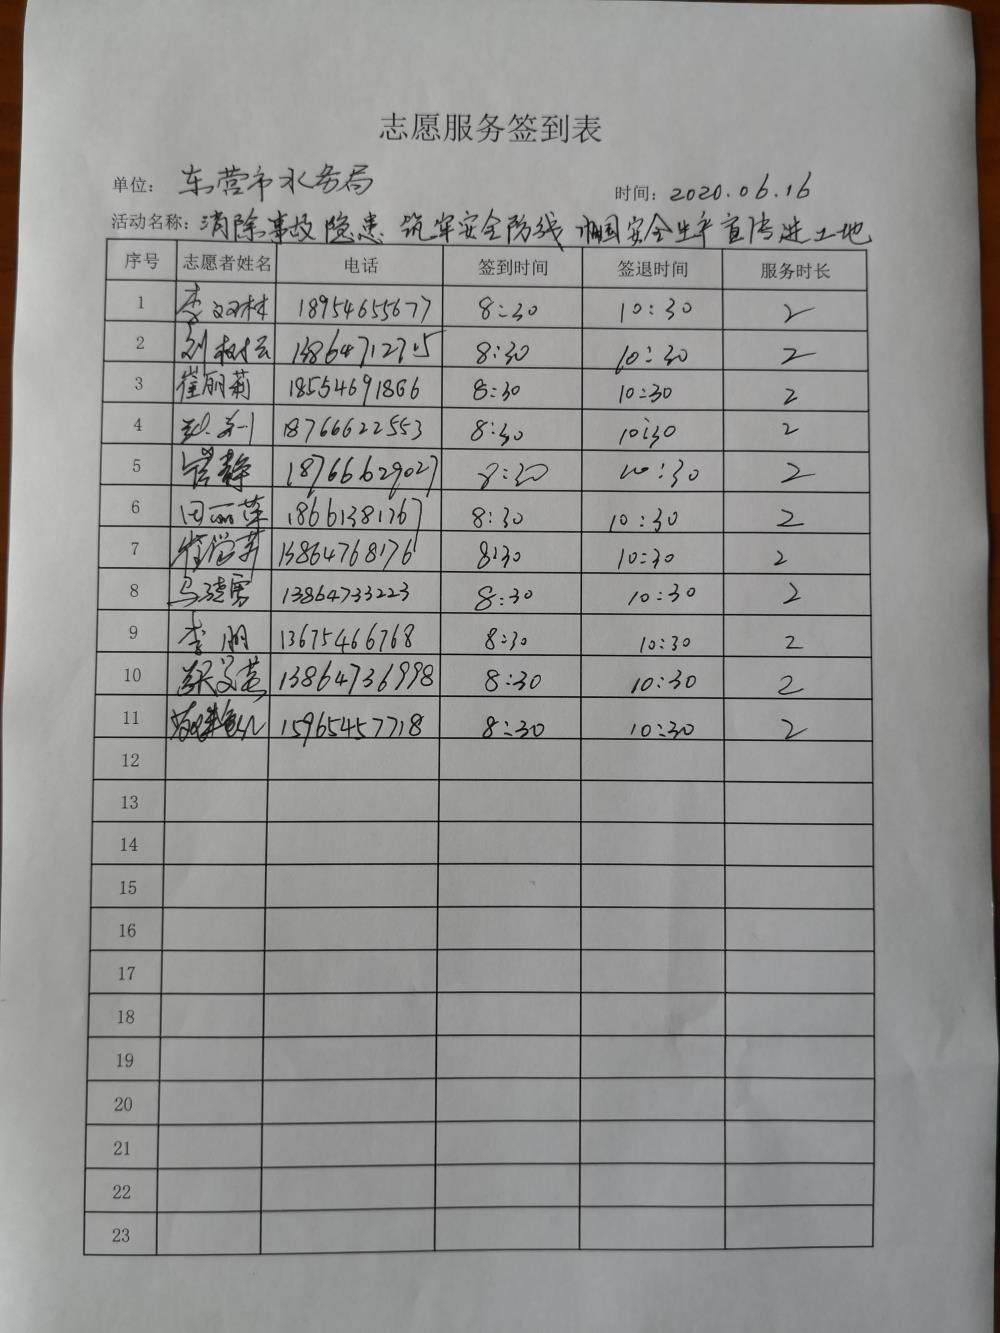 志愿服务签到表
单位: 东营市水务局 时间: 2020.06.16
活动名称: 消除事故隐患 筑牢安全防线 安全生产宣传进工地
序号 志愿者姓名 电话 签到时间 签退时间 服务时长
1 李双林 18954655677 8:30 10:30 2
2 刘树云 8:30 10:30 2
3 崔丽菊 18554691866 8:30 10:30 2
4 18766622553 8:30 10:30 2
5 静 18766629027 8:30 10:30 2
6 田丽萍 18661381767 8:30 10:30 2
7 13864768176 8:30 10:30 2
8 马德勇 13864733223 8:30 10:30 2
9 李朋 13675466768 8:30 10:30 2
10 13864736998 8:30 10:30 2
11 15965457718 8:30 10:30 2
12
13
14
15
16
17
18
19
20
21
22
23